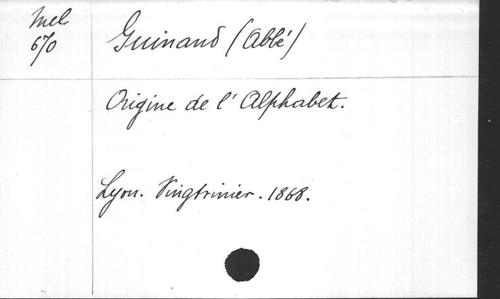 Mel
670
Guinand (Abbé)
Origine de l' Alphabet.
Lyon. Vingtrinier. 1868.